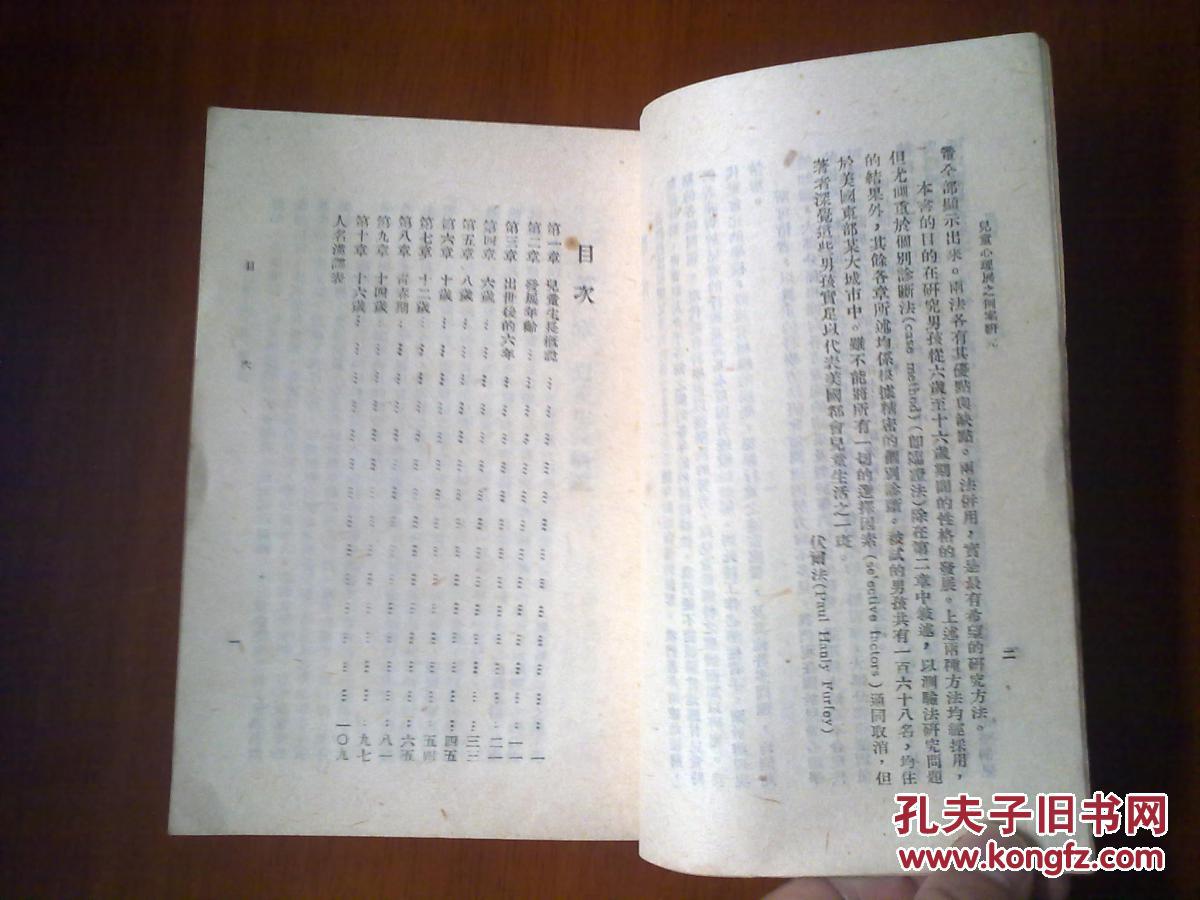 兒童心理展之個案研究
二
需全部顯示出來。兩法各有其優點與缺點。兩法併用，實是最有希望的研究方法。
本書的目的在研究男孩從六歲至十六歲期間的性格的發展。上述兩種方法均經採用，
但尤側重於個別診斷法(case method)(即臨證法)除在第二章中敍述，以測驗法研究問題
的結果外，其餘各章所述均係根據精密的個別診斷。被試的男孩共有一百六十八名，均住
於美國東部某大城市中。雖不能將所有一切的選擇因素(selective factors)通同取消，但
著者深覺這些男孩實足以代表美國都會兒童生活之一斑。
代爾法(Paul Hanly Furfey)
目次
第一章 兒童生長概說 … 一
第二章 發展年齡 … 一一
第三章 出世後的六年 … 二一
第四章 六歲 … 三三
第五章 八歲 … 四五
第六章 十歲 … 五四
第七章 十二歲 … 六五
第八章 青春期 … 八一
第九章 十四歲 … 九七
第十章 十六歲 … 一〇九
人名漢譯表
目 次
一
孔夫子旧书网
www.kongfz.com